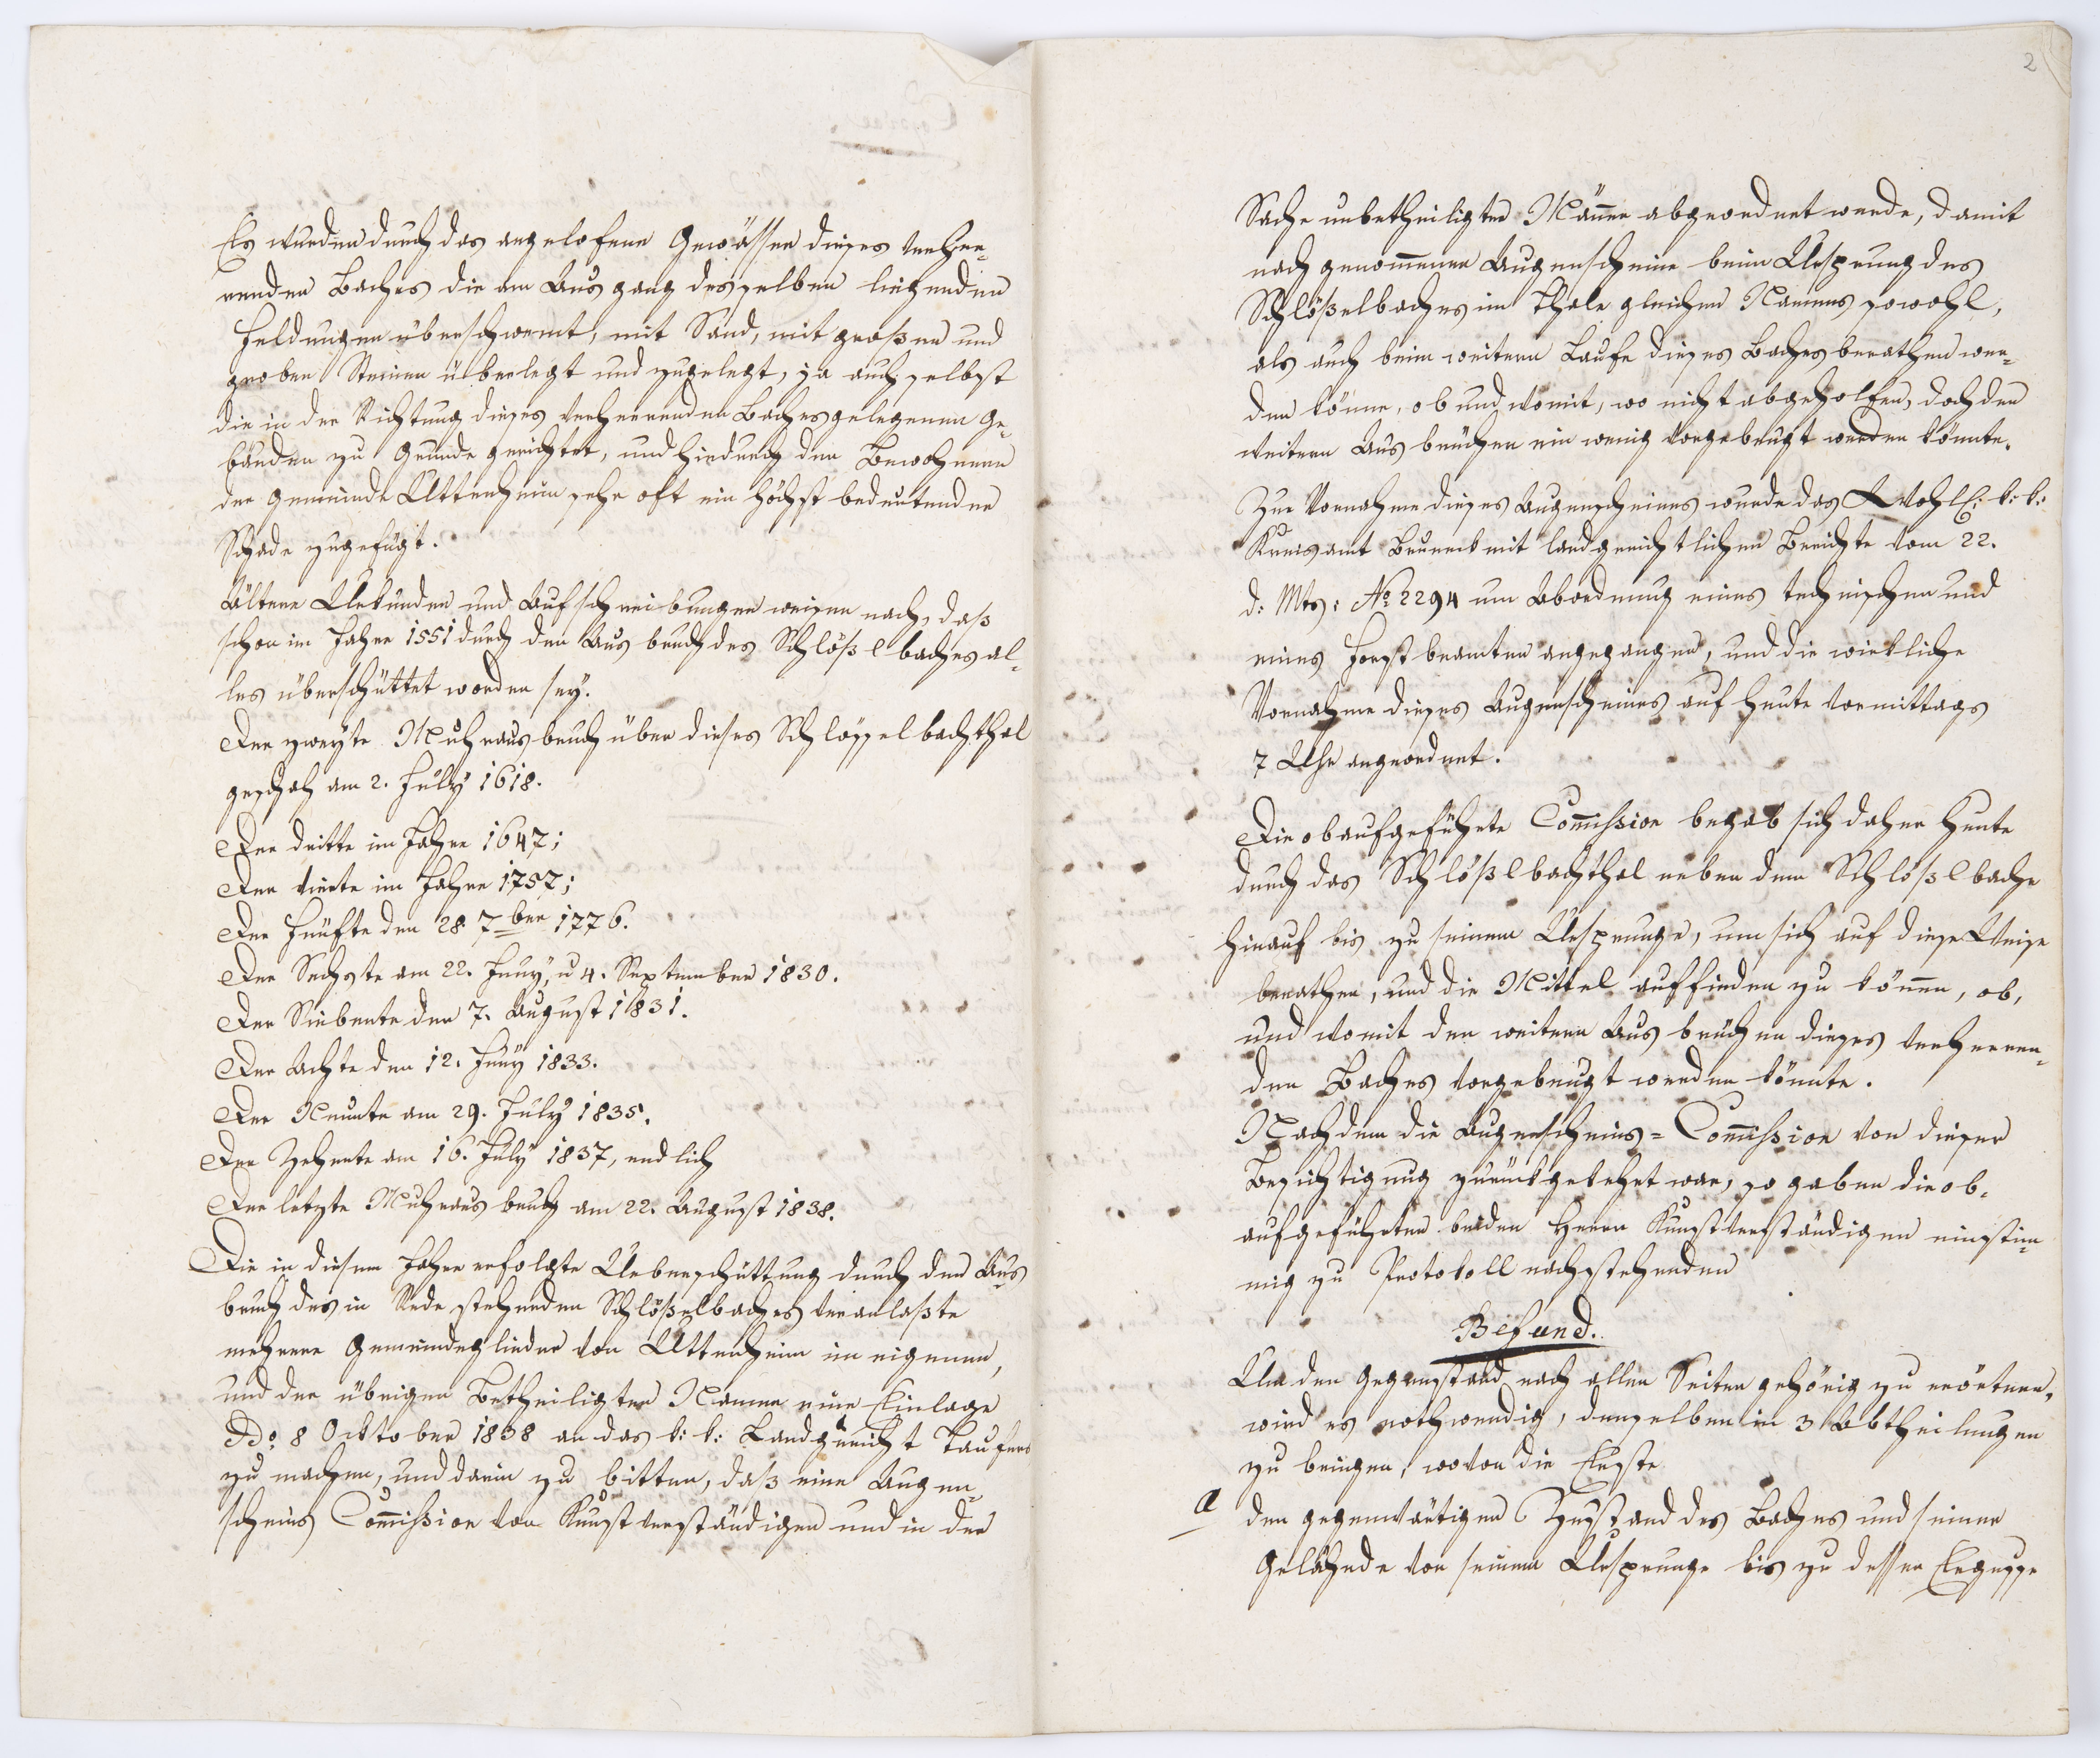 Es wurden durch das angelofene Gewässer dieses verhee-
renden Baches die am Ausgang desselben liegenden
Feldungen überschwemt, mit Sand, mit großen und
groben Steinen überlegt und zugelegt, ja auch selbst
die in der Richtung dieses verheerenden Baches gelegenen Ge-
bäuden zu Grunde gerichtet, und hiedurch den Bewohnern
der Gemeinde Uttenheim sehr oft ein höchst bedeutender
Schade zugefügt.
Ältere Urkunden und Aufschreibungen weisen nach, daß
schon im Jahre 1551 durch den Ausbruch des Schlößlbaches al-
les überschüttet worden sey.
Der zweyte Muhrausbruch über dieses Schlösselbachthal
geschah am 2. July 1618.
Der dritte im Jahre 1647;
Der vierte im Jahre 1757;
Der Fünfte den 28. 7ber 1776.
Der Sechste am 22. Juny, u 4. September 1830.
Der Siebente den 7. August 1831.
Der Achte den 12. Juny 1833.
Der Neunte am 29. July 1835.
Der Zehente am 16. July 1837, endlich
Der letzte Muhrausbruch am 22. August 1838.
Die in diesem Jahre erfolgte Ueberschüttung durch den Aus
bruch des in Rede stehenden Schlößelbaches veranlaßte
mehrere Gemeindeglieder von Uttenheim im eigenen,
und der übrigen Betheiligten Namen eine Einlage
ddo. 8 October 1838 an das k: k: Landgericht Taufers
zu machen, und darin zu bitten, daß eine Augen-
scheins Com̄ißion von Kunstverständigen und in der
2
Sache unbetheiligten Män̄er abgeordnet werde, damit
nach genom̄enen Augenscheine beim Ursprung des
Schlößelbaches im Thale gleichen Namens sowohl,
als auch beim weitern Laufe dieses Baches berathen wer-
den könne, ob und womit, wo nicht abgeholfen, doch den
weitern Ausbrüchen ein wenig vorgebeugt werden könnte.
Zur Vornahme dieses Augenscheines wurde das Wohll: k: k:
Kreisamt Bruneck mit landgerichtlichen Berichte vom 22.
d: Mts: No 2294 um Abordnung eines technischen und
eines Forstbeamten angegangen, und die wirkliche
Vornahme dieses Augenscheines auf heute vormittags
7 Uhr angeordnet.
Die obaufgeführte Com̄ißion begab sich daher heute
durch das Schlößlbachthal neben dem Schlößlbache
hinauf bis zu seinem Ursprunge, um sich auf diese Weise
berathen, und die Mittel auffinden zu kön̄en, ob,
und womit den weitern Ausbrüchen dieses verheeren-
den Baches vorgebeugt werden könnte.
Nachdem die Augenscheins=Com̄ißion von dieser
Besichtigung zurückgekehrt war, so gaben die ob-
aufgeführten beiden Herrn Kunstverständigen einstim-
mig zu Protokoll nachstehenden
Befund.
Um den Gegenstand nach allen Seiten gehörig zu erörtern,
wird es nothwendig, denselben in 3 Abtheilungen
zu bringen, wovon die Erste
a den gegenwärtigen Zustand des Baches und seiner
Gelähnde von seinem Ursprunge bis zu dessen Ergusse